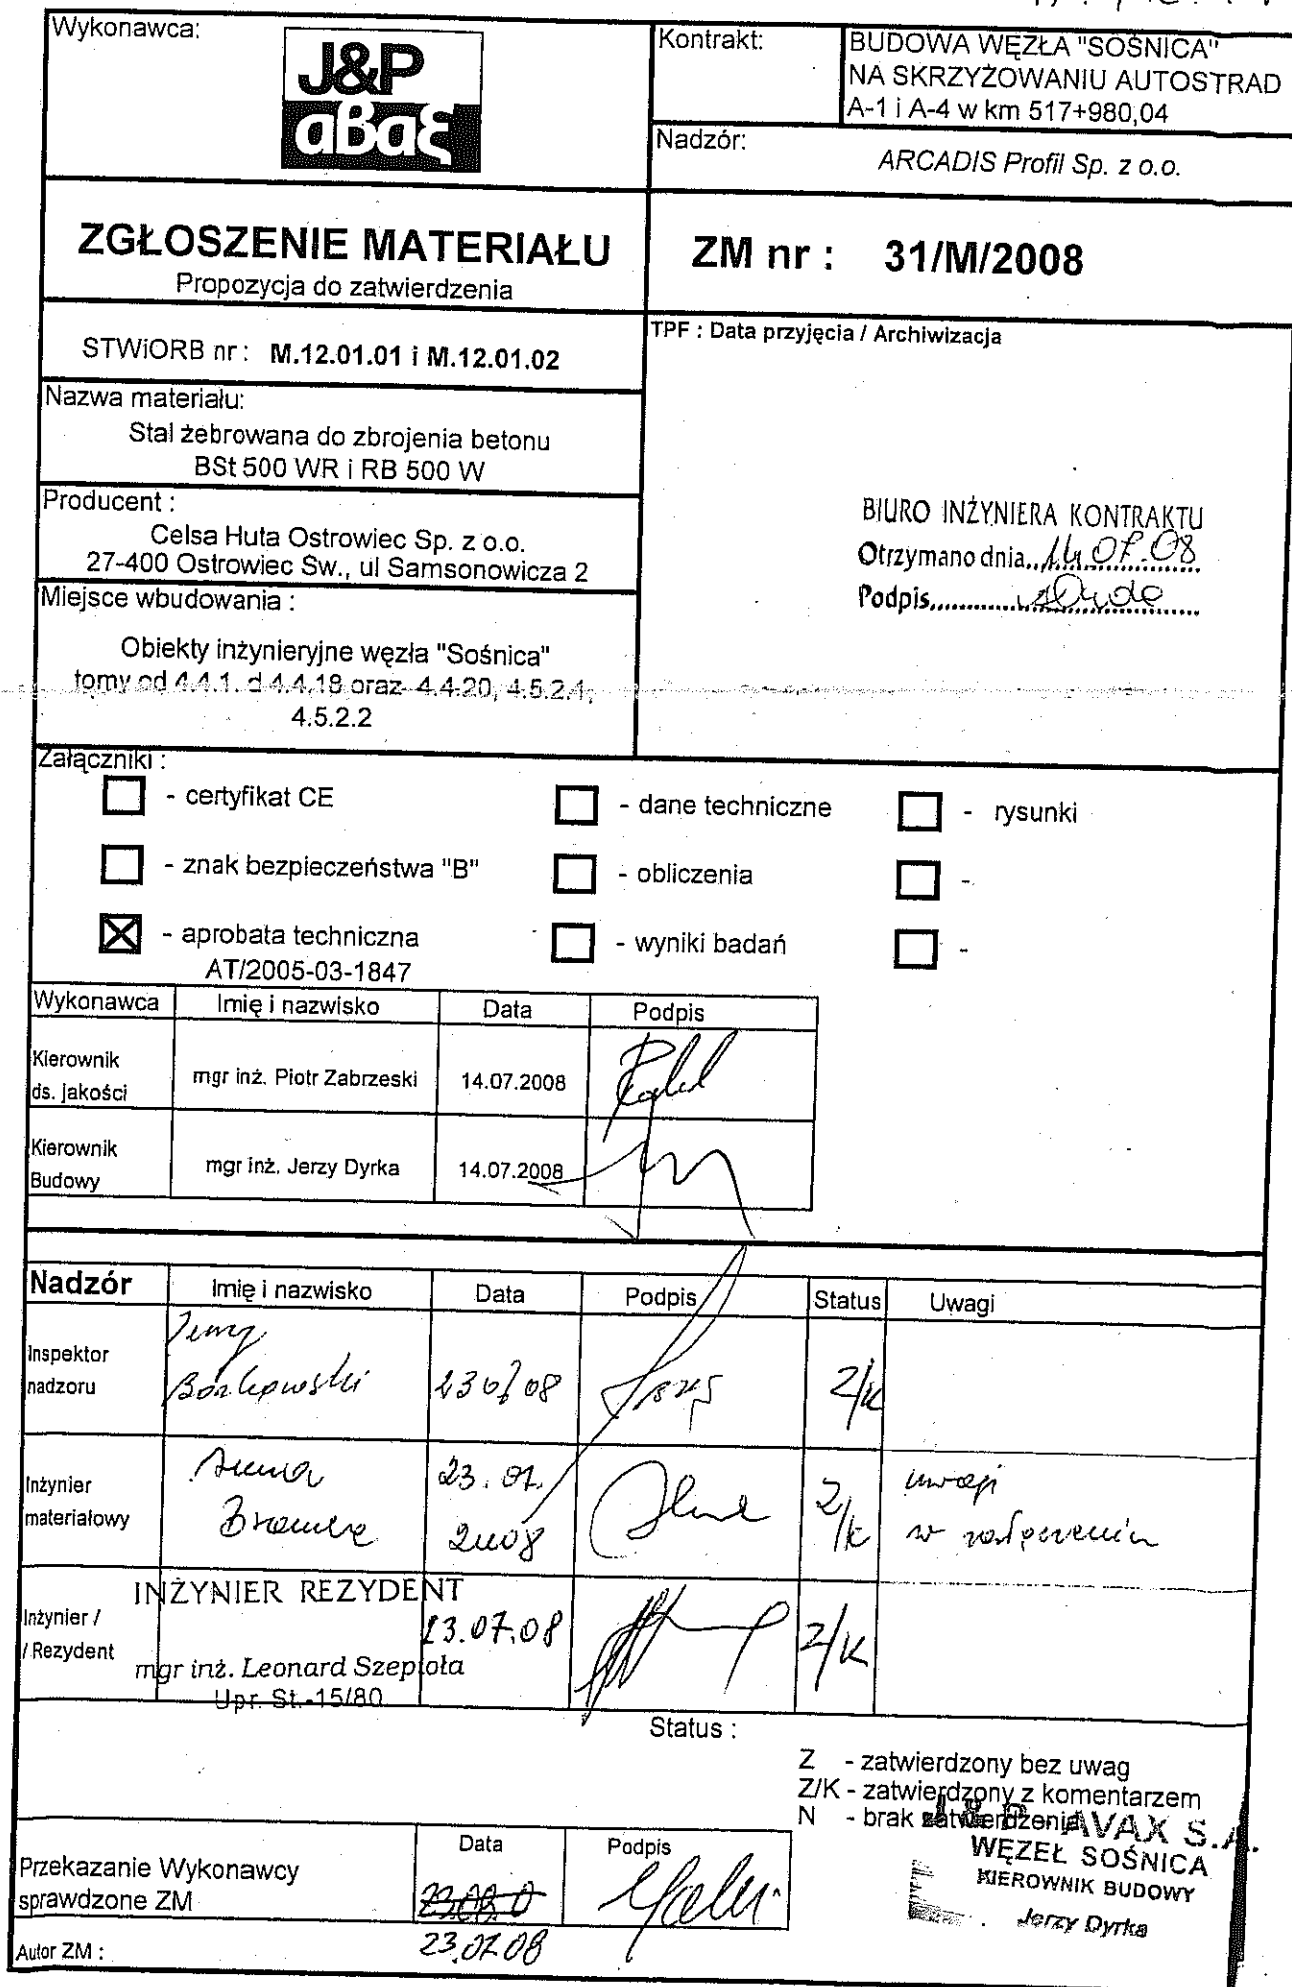 Wykonawca:
J&P
aBaξ
Kontrakt:
BUDOWA WĘZŁA "SOŚNICA"
NA SKRZYŻOWANIU AUTOSTRAD
A-1 i A-4 w km 517+980,04
Nadzór:
ARCADIS Profil Sp. z o.o.
ZGŁOSZENIE MATERIAŁU
Propozycja do zatwierdzenia
ZM nr : 31/M/2008
STWiORB nr : M.12.01.01 i M.12.01.02
TPF : Data przyjęcia / Archiwizacja
Nazwa materiału:
Stal żebrowana do zbrojenia betonu
BSt 500 WR i RB 500 W
Producent :
Celsa Huta Ostrowiec Sp. z o.o.
27-400 Ostrowiec Św., ul Samsonowicza 2
BIURO INŻYNIERA KONTRAKTU
Otrzymano dnia 14.07.08
Podpis
Miejsce wbudowania :
Obiekty inżynieryjne węzła "Sośnica"
tomy od 4.4.1. d 4.4.18 oraz 4.4.20, 4.5.2.1,
4.5.2.2
Załączniki :
- certyfikat CE
- dane techniczne
- rysunki
- znak bezpieczeństwa "B"
- obliczenia
-
- aprobata techniczna
AT/2005-03-1847
- wyniki badań
-
Wykonawca Imię i nazwisko Data Podpis
Kierownik
ds. jakości
mgr inż. Piotr Zabrzeski 14.07.2008
Kierownik
Budowy
mgr inż. Jerzy Dyrka 14.07.2008
Nadzór Imię i nazwisko Data Podpis Status Uwagi
Inspektor
nadzoru
Jerzy
23 07 08
Z/K
Inżynier
materiałowy
Anna
23.07.
2008
Z/K
uwagi
w załączeniu
INŻYNIER REZYDENT
Inżynier /
/ Rezydent
mgr inż. Leonard Szepioła
Upr. St.-15/80
23.07.08
Z/K
Status :
Z - zatwierdzony bez uwag
Z/K - zatwierdzony z komentarzem
N - brak zatwierdzenia
J & P - AVAX S.A.
WĘZEŁ SOŚNICA
KIEROWNIK BUDOWY
Jerzy Dyrka
Przekazanie Wykonawcy
sprawdzone ZM
Data
Podpis
23.07.08
Autor ZM :